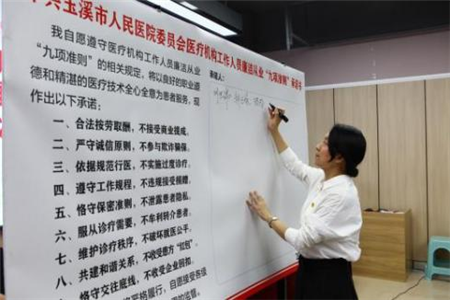 共玉溪市人民医院委员会医疗机构工作人员廉洁从业“九项准则”承诺书
我自愿遵守医疗机构工作人员廉洁从业
“九项准则”的相关规定，将以良好的职业道
德和精湛的医疗技术全心全意为患者服务，现
作出以下承诺：
一、合法按劳取酬，不接受商业提成。
二、严守诚信原则，不参与欺诈骗保。
三、依据规范行医，不实施过度诊疗。
四、遵守工作规程，不违规接受捐赠。
五、恪守保密准则，不泄露患者隐私。
六、服从诊疗需要，不牟利转介患者。
七、维护诊疗秩序，不破坏就医公平。
八、共建和谐关系，不收受患方“红包”。
九、恪守交往底线，不收受企业回扣。
严格履行，自愿接受医
的监督。
承诺人：